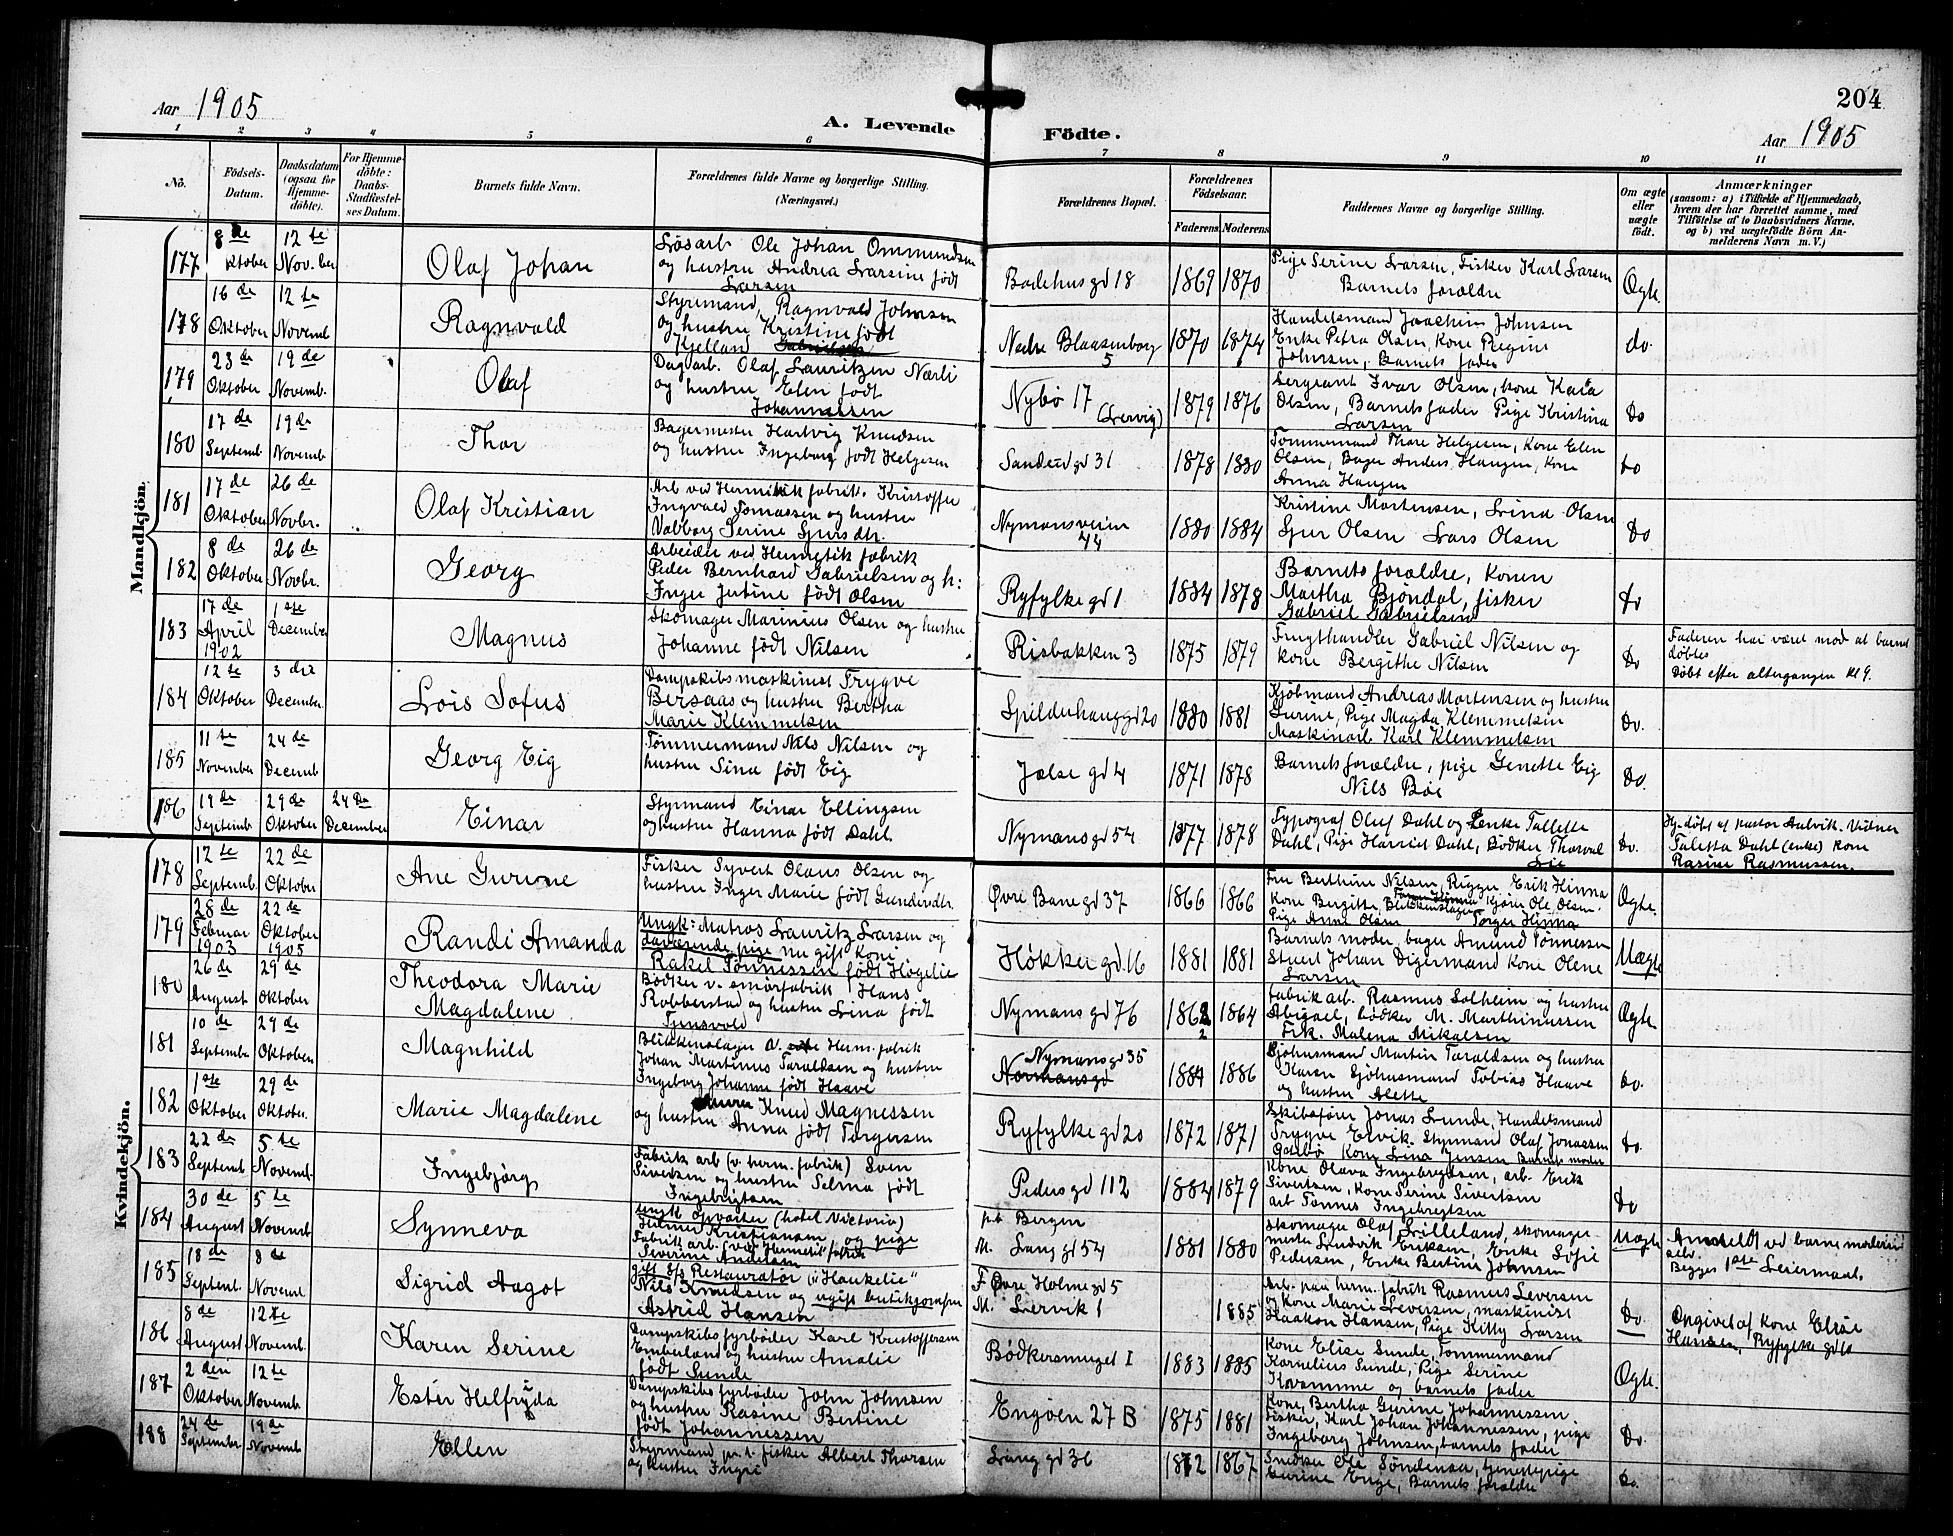 204
Aar 1905
A. Levende Födte.
Aar 1905
1 2 3 4 5 6 7 8 9 10 11
No.
Födsels-
Datum.
Daabsdatum
(ogsaa for
Hjemme-
döbte).
For Hjemme-
döbte:
Daabs-
Stadfæstel-
ses Datum.
Barnets fulde Navn.
Forældrenes fulde Navne og borgerlige Stilling.
(Næringsvei.)
Forældrenes Bopæl.
Forældrenes
Födselsaar.
Faderens. Moderens.
Faddernes Navne og borgerlige Stilling.
Om ægte
eller
uægte
födt.
Anmærkninger
(saasom: a) i Tilfælde af Hjemmedaab,
hvem der har forrettet samme, med
Tilföielse af to Daabsvidners Navne,
og b) ved uægtefödte Börn An-
melderens Navn m. V.)
Mandkjön.
177
8 de
ktober
12 te
Nov.ber
Olaf Johan
Løsarb Ole Johan Ommundsen
og hustru Andrea Larsine født
Larsen
Badehusgd 18
1869 1870
Pige Serine Larsen, Fisker Karl Larsen
Barnets forældre
Ægte
178
16 de
Oktober
12 te
Novemb
Ragnvald
Styrmand Ragnvald Johnsen
og hustru Kristine født
Kjelland
Nedre Blaasenborg
5
1870 1874
Handelsmand Joachim Johnsen
Enke Petra Olsen, Kone Regine
Johnsen, Barnets fader
do
179
23 de
Oktober
19 de
Novemb.
Olaf
Dagarb. Olaf Lauritzen Nærli
og hustru Elen født
Johannessen
Nybø 17
(Lervig)
1879 1876
Sergeant Ivar Olsen, kone Kaia
Olsen, Barnets fader Pige Kristina
Larsen
do
180
17 de
Septemb
19 de
Novemb
Thor
Bagermester Hartvig Knudsen
og hustru Ingeborg født Helgesen
Sandeidgd 31
1878 1880
Tømmermand Thore Helgesen, kone Elen
Olsen, Bager Anders Haugen, kone
Anna Haugen
do
181
17 de
Oktober
26 de
Novbr.
Olaf Kristian
Arb ved Hermetikfabrik. Kristoffer
Ingvald Tomassen og hustru
Valborg Serine Sjursdtr.
Nymansveien
44
1880 1884
Kristine Mortensen, Lind Olsen
Sjur Olsen Lars Olsen
do
182
8 de
Oktober
26 de
Novbr.
Georg
Arbeider ved Hermetik fabrik
Peder Bernhard Gabrielsen og h:
Inger Jutine født Olsen
Ryfylkegd 1
1884 1878
Barnets forældre, konen
Martha Bjøndal, fisker
Gabriel Gabrielsen
do
183
17 de
April
1902
1ste
December
Magnus
Skomager Marinius Olsen og hustru
Johanne født Nilsen
Risbakken 3
1875 1879
Frugthandler Gabriel Nilsen og
kone Bergithe Nilsen
do
Faderen har været mod at barnet
døbtes
Døbt efter altergangen kl 9.
184
12 te
Oktober
3 die
December.
Lois Sofus
Dampskibsmaskinist Trygve
Bersaas og hustru Bertha
Marie Klemmetsen
Spilderhauggd 20
1880 1881
Kjøbmand Andreas Mortensen og hustru
Gurine, Pige Magda Klemmetsen
Maskinarb Karl Klemmetsen
do.
185
11 te
November
24 de
Decemb
Georg Eig
Tømmermand Nils Nilsen og
hustru Sina født Eig
Jelsegd 4
1871 1878
Barnets forældre, pige Genette Eig
Nils Bøe
do.
186
19 de
Septemb
29 de
Oktober
24 de
December
Einar
Styrmand Einar Ellingsen
og hustru Hanna født Dahl
Nymansgd 54
1877 1878
Typograf Oluf Dahl og Enke Tallette
Dahl, Pige Harriet Dahl, Bødker Thorval
Lie
do.
Hj. døbt af pastor Aalvik. Vidner
Taletta Dahl (enke) kone
Rasine Rasmussen.
Kvindekjön.
178
12 te
Septemb.
22 de
Oktober
Ane Gurine
Fisker Syvert Olaus Olsen og
hustru Inger Marie født Gundersdtr.
Øvre Banegd 37
1866 1866
Fru Berthine Nilsen, Rigger Erik Hinna
Kone Bergitte, Kjøre Ole Olsen.
Pige Anne Olsen Torger Hinna
Ægte.
179
28 de
Februar
1903
22 de
Oktober
1905
Randi Amanda
Ungk: Matros Lauritz Larsen og
daværende pige nu gift kone
Rakel Tønnessen født Høgelie
Høkkergd. 16
1881 1881
Barnets moder, bager Amund Tønnessen
Stuert Johan Digermand kone Olene
Larsen
Uægte
180
26 de
August
29 de
Oktober
Theodora Marie
Magdalene
Bødker v. smørfabrik Hans
Robberstad og hustru Lina født
Tunsvold
Nymansgd 76
1862 1864
2
Fabrik arb. Rasmus Solheim og hustru
Abigael, bødker M. Marthinussen
Frk. Malena Mikalsen
Ægte
181
10 de
September
29 de
Oktober
Magnhild
Blikkenslager v. Herm. fabrik
Johan Martinus Taraldsen og hustru
Ingeborg Johanne født Haave
Nymansgd 35
Normansgd
1884 1886
Sjøhusmand Martin Taraldsen og hustru
Karen Sjøhusmand Tobias Haave
og hustru Alette
do.
182
1ste
Oktober
29 de
Oktober.
Marie Magdalene
Murer Knud Magnessen
og hustru Anna født Torgersen
Ryfylkegd 20
1872 1871
Skibsfører Jonas Lunde, Handelsmand
Trygve Ervik. Styrmand Olaf Jonassen
Østebø kone Lina Jensen Barnets moder
do
183
22 de
Septemb
5 te
Novemb.
Ingebjørg
Fabrik arb (v. herm. fabrik) Sven
Sivertsen og hustru Selma født
Ingebrigtsen
Pedersgd 112
1884 1879
Kone Olava Ingebregtsen, arb. Erik
Sivertsen, Kone Serine Sivertsen
arb Tønnes Ingebregtsen
do
184
30 de
August
5 te
Novemb
Synneva
ungk opvarter (hotel Victoria)
Hilmer Kristiansen og pige
Fabrik arb. ved Hermetik fabrik
Severine Andersen
p.t Bergen
M. Langgd 54
1881 1880
Skomager Olaf Lilleland, skomager
mester Ludvik Eriksen, Enke Sofie
Pedersen, Enke Bertine Johnsen
Uægte
Anmeldt ved barnemoderen
selv.
Begges 1ste Leiermaal.
185
18 de
Septemb.
8 de
Novemb
Sigrid Aagot
gift Restauratør (i "Haukelie"
Nils Knudsen og ugift butikjomfru
Astrid Hansen
F Øvre Holmegd 5
M. Lervik 1
1885
Arb. paa herm. fabrik Rasmus Leversen
og kone Marie Leversen, maskinist
Haakon Hansen, Pige Kitty Larsen
do.
Opgivet af kone Elise
Hansen, Ryfylkegd 10
186
8 de
August
12 te
Novemb.
Karen Serine
Dampskibsfyrbøder Karl Kristoffersen
Emberland og hustru Amalie
født Sunde
Bødkersmuget 1
1883 1885
Kone Elise Sunde, Tømmermand
Kornelius Sunde, Pige Serine
Kvamme og barnets fader
Ægte.
187
2 den
Oktober
12 te
Novemb
Ester Helfryda
Dampskibsfyrbøder John Johnsen
og hustru Rasine Bertine
født Johannessen
Engøen 27 B
1875 1881
Kone, Bertha Gurine Johannessen.
Fisker, Karl Johan Johannessen, pige
Ingeborg Johnsen, barnets fader
do.
188
24 de
September
19 de
Novemb
Ellen
Styrmand p.t. fisker Albert Thorsen
og hustru Ingri
Langgd 36
1872 1867
Snedker Ole Søndenaa, tjenestepige
Gurine Enge, Barnets forældre
do.